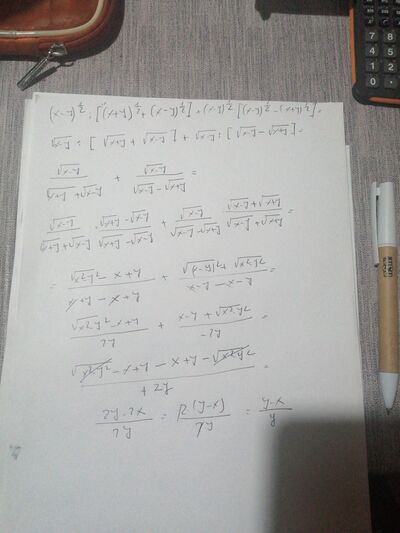 (x-y)^½ : [(x+y)^½ + (x-y)^½] + (x-y)^½ : [(x-y)^½ - (x+y)^½] =
√x-y : [√x+y + √x-y] + √x-y : [√x-y - √x+y] =
√x-y / √x+y + √x-y + √x-y / √x-y - √x+y =
√x-y / √x+y + √x-y · √x+y - √x-y / √x+y - √x-y + √x-y / √x-y - √x+y · √x-y + √x+y / √x-y + √x+y =
= √x²-y² - x+y / x+y - x+y + √(x-y)² + √x²-y² / x-y-x-y =
√x²-y² - x+y / 2y + x-y + √x²-y² / -2y =
√x²-y² - x+y - x+y - √x²-y² / +2y =
2y-2x / 2y = 2(y-x) / 2y = y-x / y